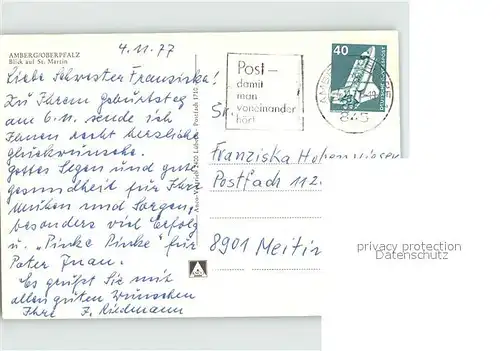 AMBERG/OBERPFALZ
Blick auf St. Martin
4.11.77
Liebe Schwester Franziska!
Zu Ihrem Geburtstag
am 6.11. sende ich
Ihnen recht herzliche
Glückwünsche.
Gottes Segen und gute
Gesundheit für Ihre
und Sorgen,
besonders viel Erfolg
u. "Pinke Pinke" für
Pater Juan.
Es grüßt Sie mit
allen guten Wünschen
Ihre F. Riedmann
Post –
damit
man
voneinander
hört
40
DEUTSCHE BUNDESPOST
845
Sr.
Franziska
Postfach 112.
8901 Meitin
privacy protection
Datenschutz